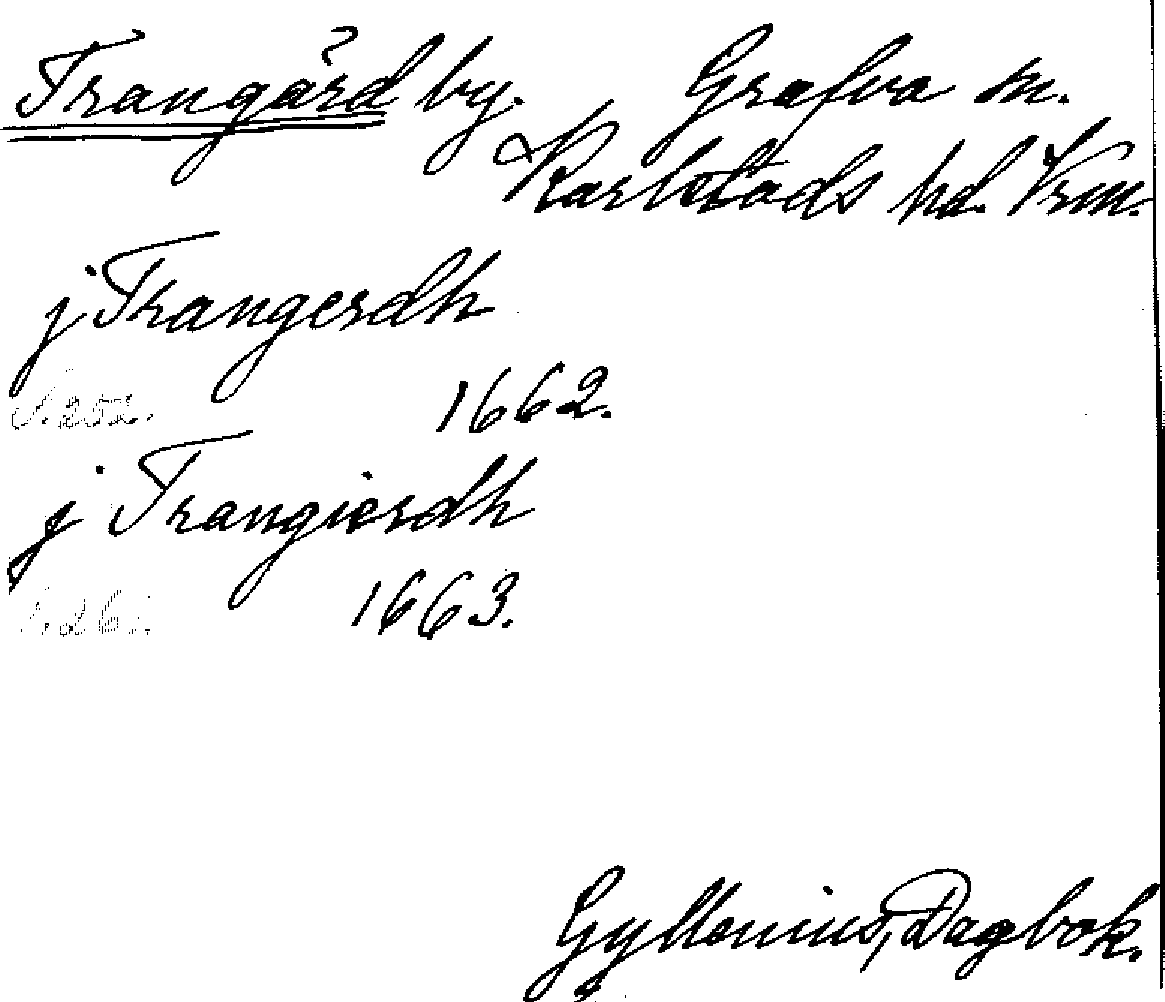 Trangård by. Grafva sn.
Karlstads hd. Vrm.
j Trangerdh
S. 252. 1662.
j Trangierdh
1663.
Gyllenius, Dagbok.